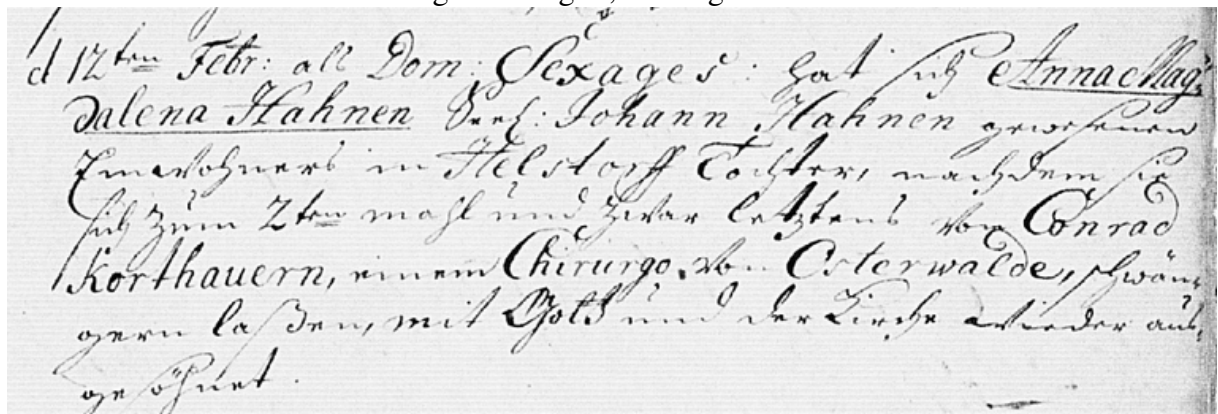 d 12ten Febr: all Dom: Sexages: hat sich Anna Mag,
dalena Hahnen Seel: Johann Hahnen gewesenen
Einwohners in Helstorff Tochter, nachdem sie
sich zum 2ten mahl und zwar letztens von Conrad
Korthauern, einem Chirurgo von Osterwalde, schwän,
gern laßen, mit Gott und der Kirche wieder aus,
gesöhnet.